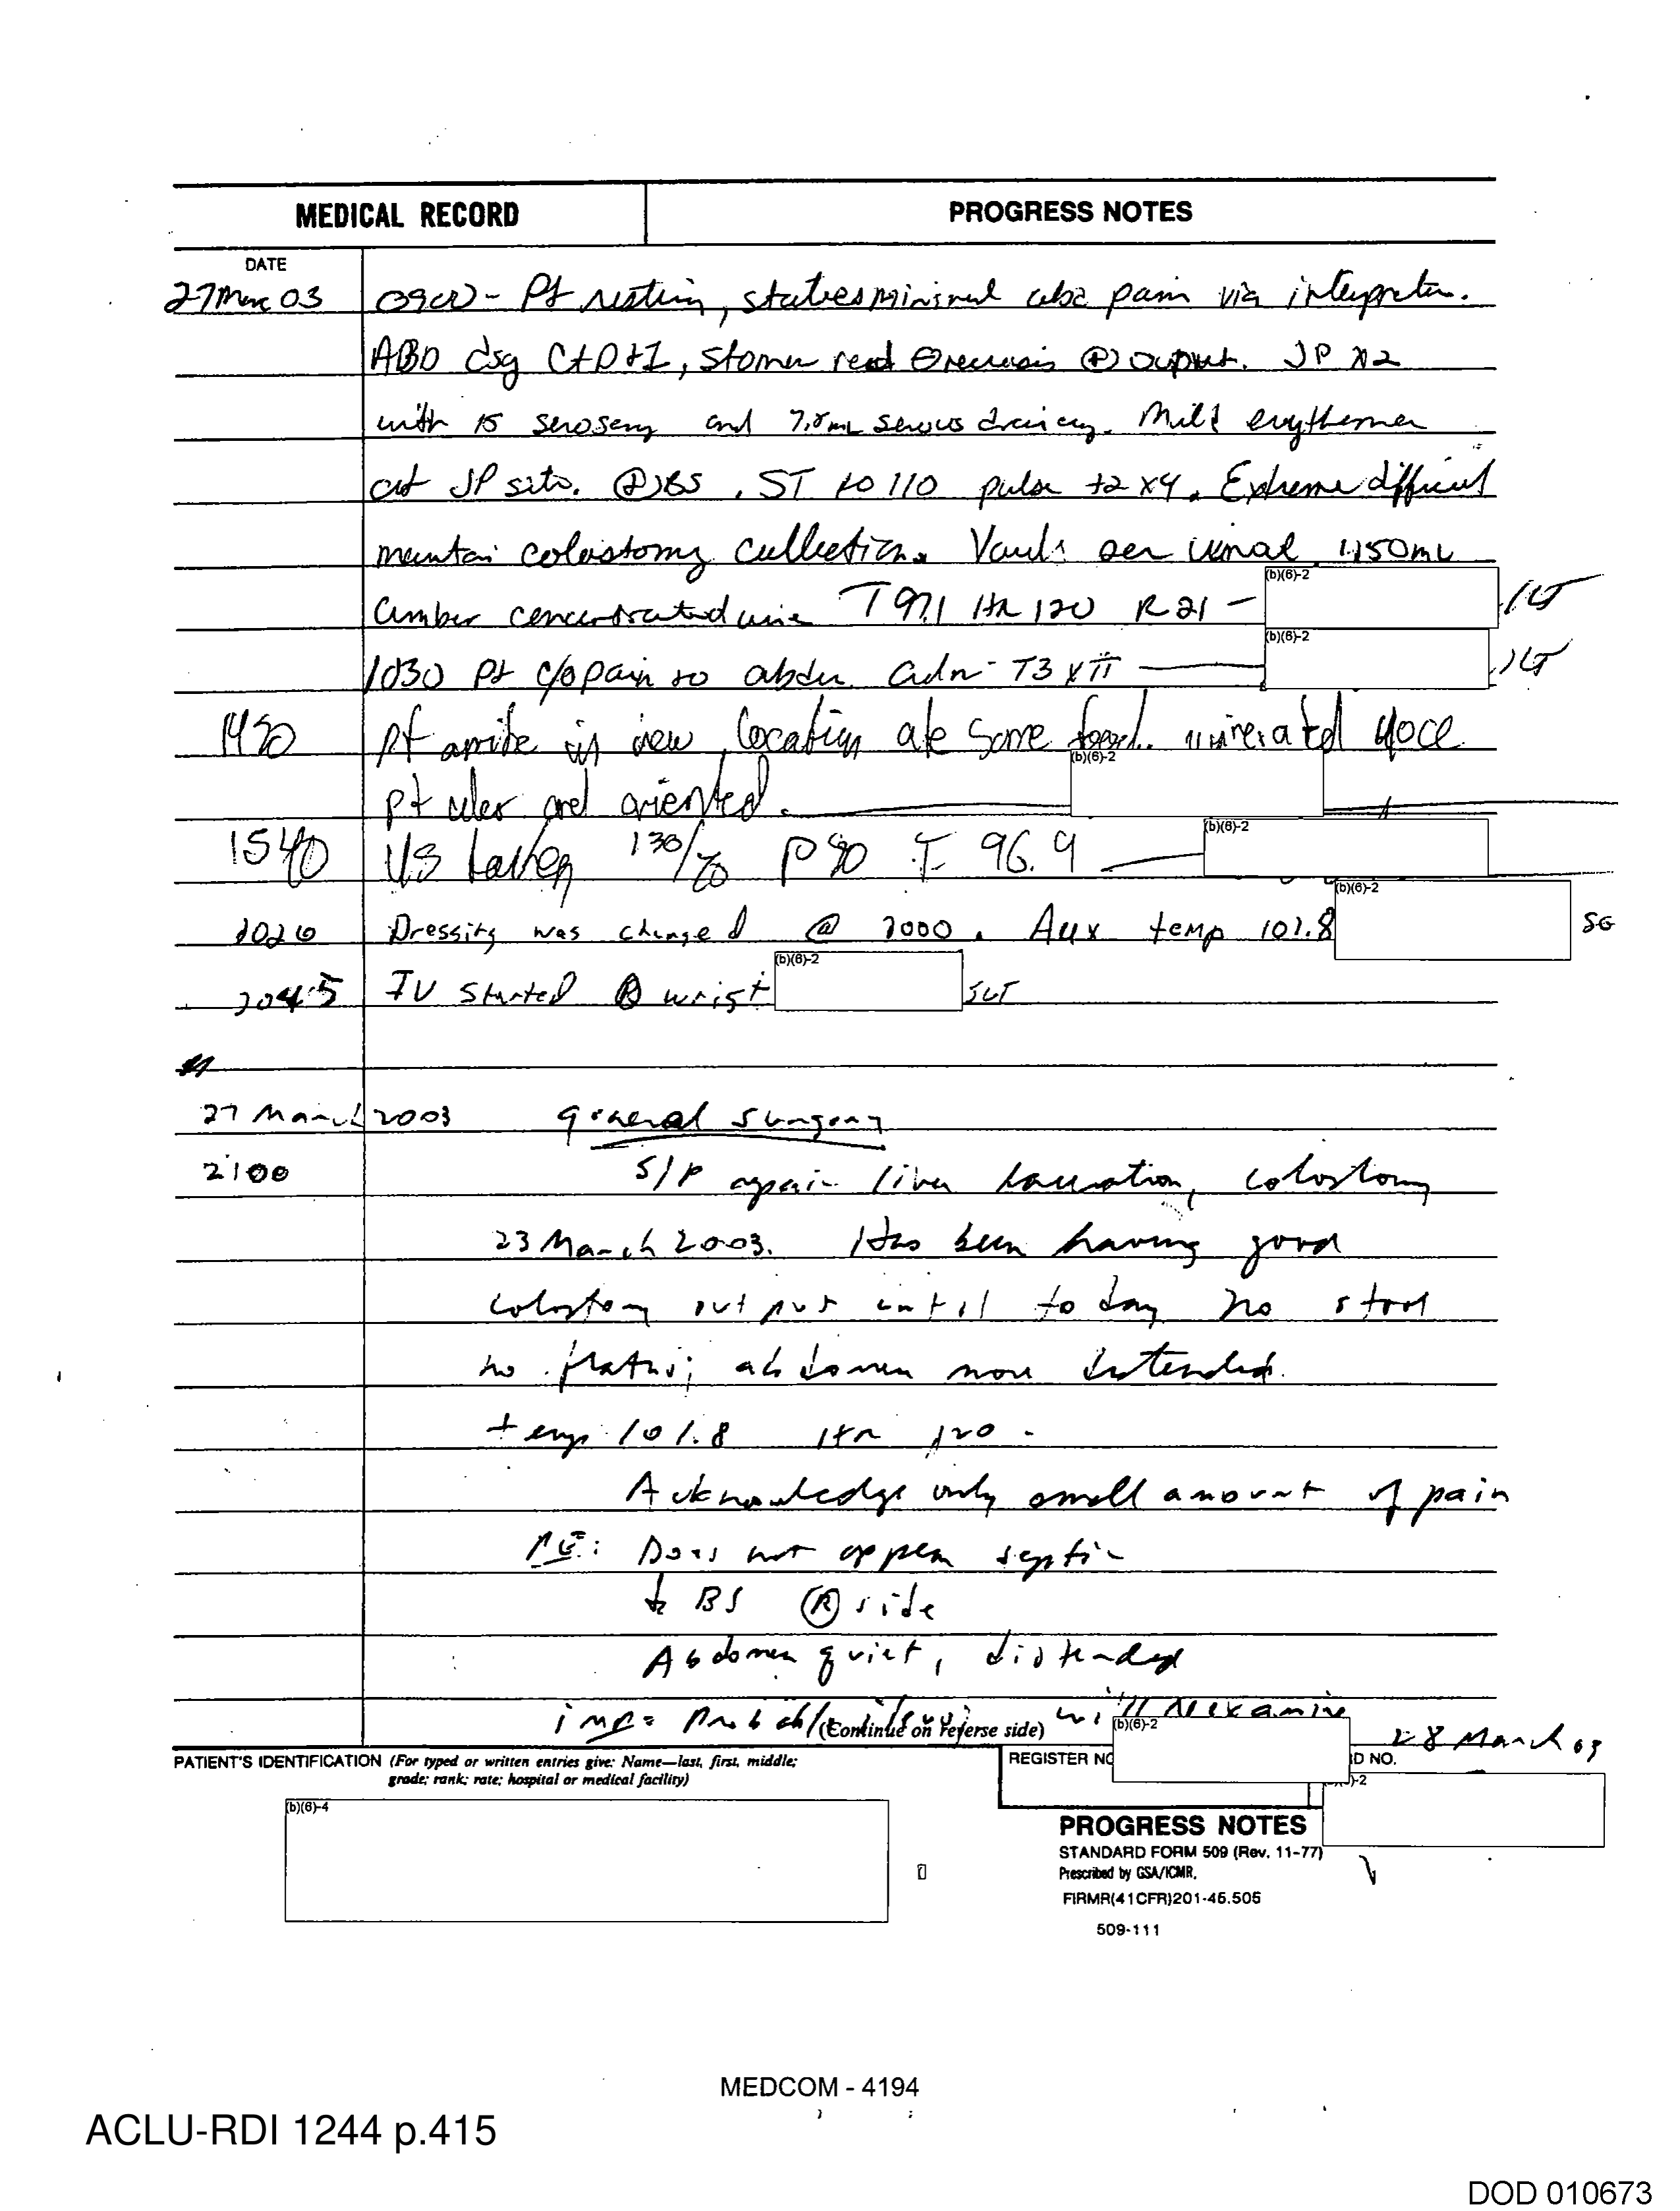 MEDICAL RECORD PROGRESS NOTES
DATE
27 Mar 03 0900 - Pt resting, states minimal abd pain via interpreter.
ABD dsg C+D+I, stoma red ⊖ necrosis ⊕ output. JP x2
with 15 serosang and 7.5mL serous drainag. Mild erythema
at JP site. ⊕ BS. ST to 110 pulse +2 x4. Extreme difficult
maintai colostomy collection. Voids per urinal 1150mL
amber concentrated urine T 97.1 HR 120 R 21 - (b)(6)-2 1LT
1030 Pt c/o pain to abdu. Adm T3 x II (b)(6)-2 1LT
1430 pt arrive in new location ate some food. urinerated 40cc
pt aler and oriented. (b)(6)-2
1540 V/S taken 130/70 P 90 T 96.9 (b)(6)-2
2020 Dressing was changed @ 2000. Aux temp 101.8 (b)(6)-2 SG
2045 IV started Ⓡ wrist (b)(6)-2 1LT
27 March 2003 general surgery
2100 S/P repair liver laceration, colostomy
23 March 2003. Has been having good
colostomy output until today no stool
no flatus; abdomen more distended.
temp 101.8 HR 120.
Acknowledge only small amount of pain
PE: Does not appear septic
↓ BS Ⓡ side
Abdomen quiet, distended
imp = Probable ileus will reexamine
(Continue on reverse side) (b)(6)-2 28 March 03
PATIENT'S IDENTIFICATION (For typed or written entries give: Name—last, first, middle; REGISTER NO D NO.
grade; rank; rate; hospital or medical facility) )-2
(b)(6)-4
PROGRESS NOTES
STANDARD FORM 509 (Rev. 11-77)
Prescribed by GSA/ICMR,
FIRMR(41CFR)201-45.505
509-111
MEDCOM - 4194
ACLU-RDI 1244 p.415
DOD 010673